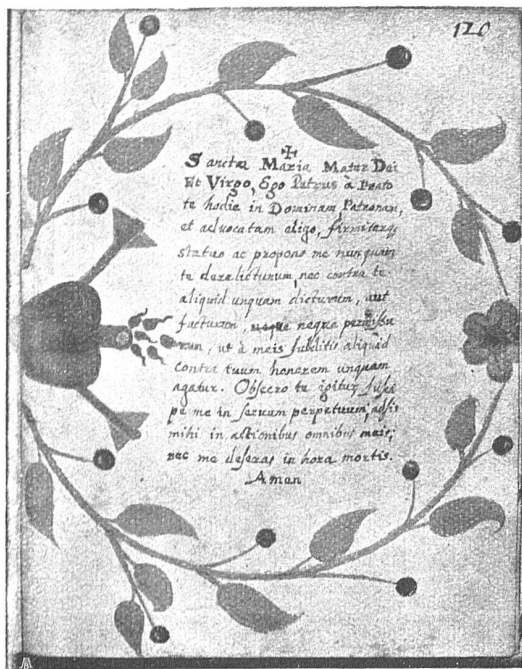 120
Sancta Maria Mater Dei
Et Virgo, Ego Petrus à Prato
te hodie in Dominam, Patronam,
et advocatam eligo, firmiterq,
statuo ac propono me nunquam
te derelicturum, nec contra te
aliquid unquam dicturum, aut
facturum, neque neque permissu
rum, ut à meis subditis aliquid
contra tuum honorem unquam
agatur. Obsecro te igitur, susci
pe me in servum perpetuum, adsis
mihi in actionibus omnibus meis,
nec me deseras in hora mortis.
Amen
A